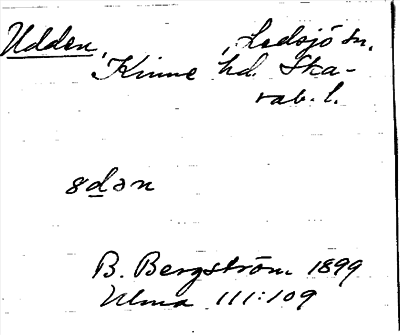 Udden, , Ledsjö sn.
Kinne hd. Ska-
rab. l.
8dən
B. Bergström 1899
Ulma 111:109